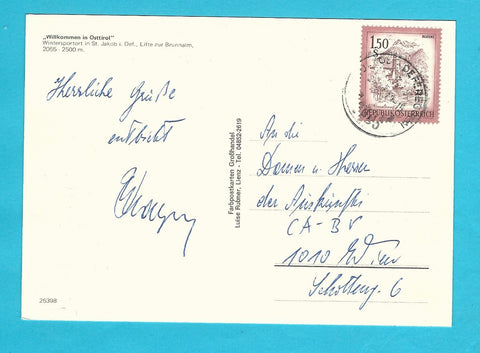 „Willkommen in Osttirol"
Wintersportort in St. Jakob i. Def., Lifte zur Brunnalm,
2055 - 2500 m.
Herrliche Grüße
entbietet
Farbpostkarten Großhandel
Luise Rubner, Lienz - Tel. 04852-2619
1.50
REPUBLIK ÖSTERREICH
An die
Damen u. Herren
der Auskunftei
CA-BV
1010 Wien
Schotteng. 6
25398